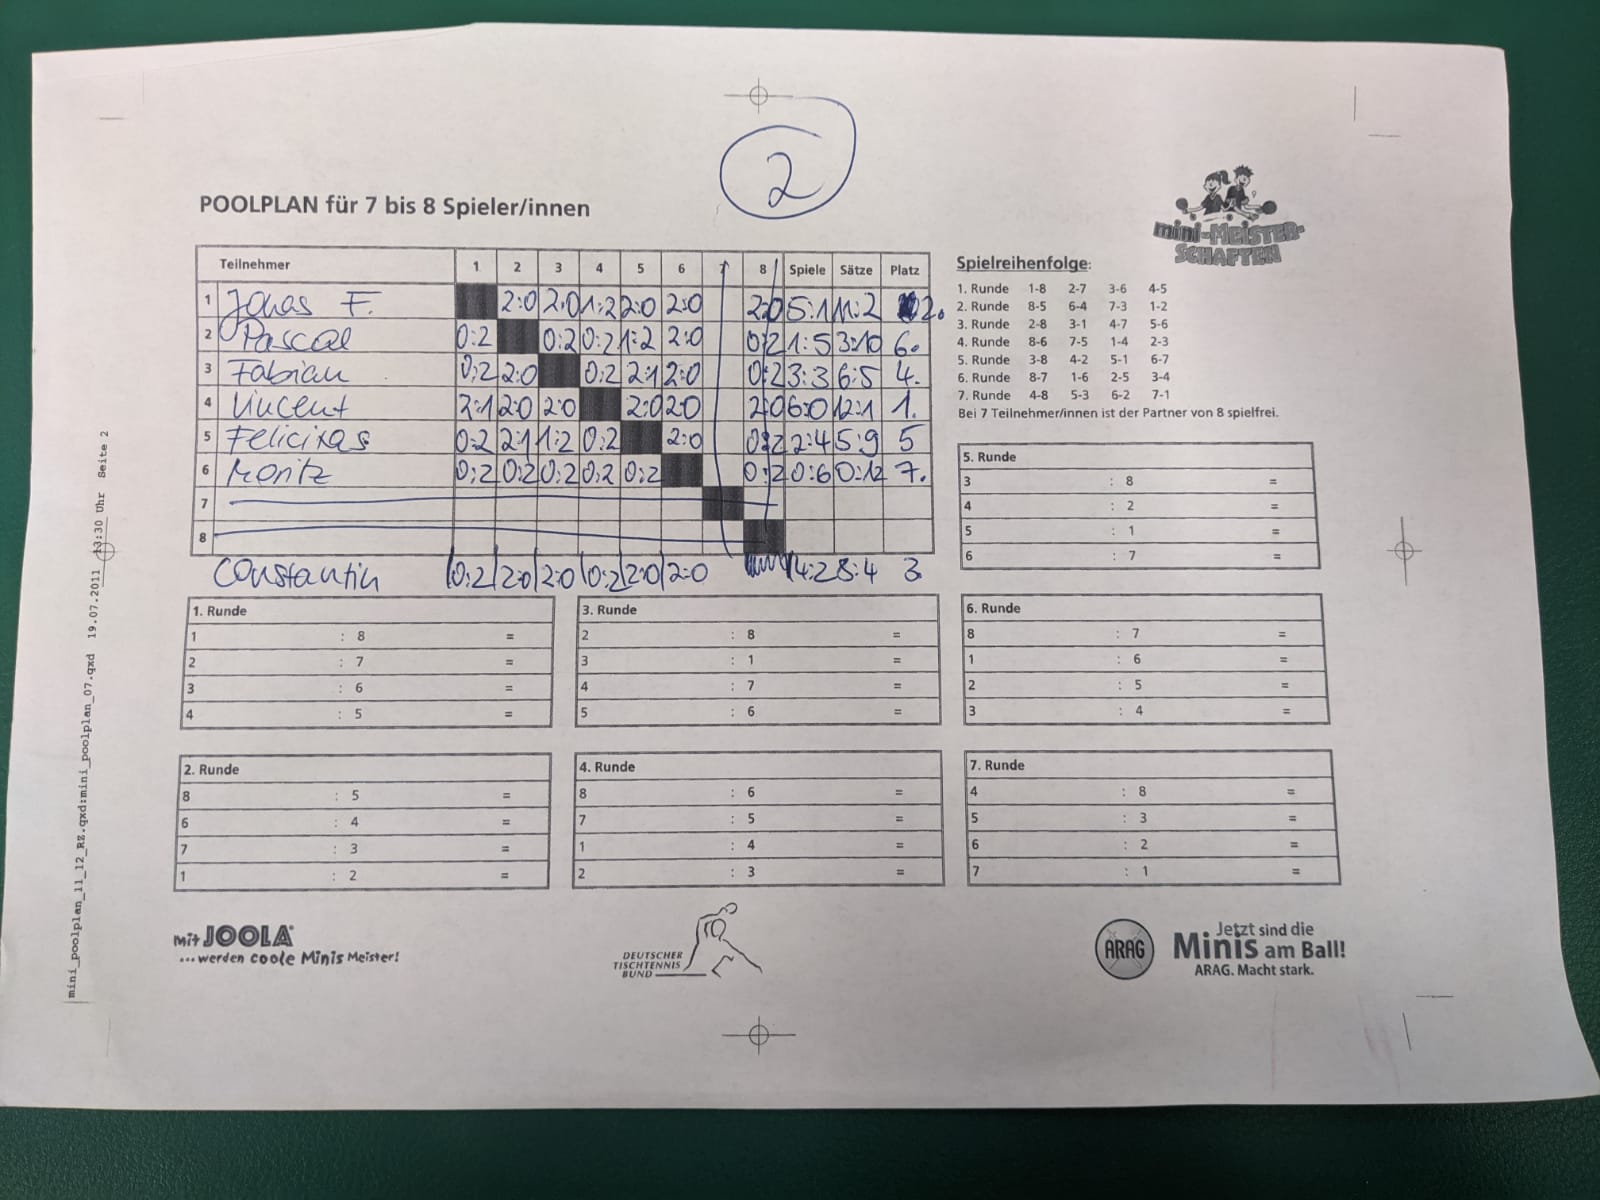 2
POOLPLAN für 7 bis 8 Spieler/innen
mini-MEISTER-
SCHAFTEN
Teilnehmer 1 2 3 4 5 6 7 8 Spiele Sätze Platz
1 Jonas F. 2:0 2:0 1:2 2:0 2:0 2:0 5:1 11:2 2.
2 Pascal 0:2 0:2 0:2 1:2 2:0 0:2 1:5 3:10 6.
3 Fabian 0:2 2:0 0:2 2:1 2:0 0:2 3:3 6:5 4.
4 Vincent 2:1 2:0 2:0 2:0 2:0 2:0 6:0 12:1 1.
5 Felicitas 0:2 2:1 1:2 0:2 2:0 0:2 2:4 5:9 5
6 Moritz 0:2 0:2 0:2 0:2 0:2 0:2 0:6 0:12 7.
7
8
Constantin 0:2 2:0 2:0 0:2 2:0 2:0 4:2 8:4 3.
Spielreihenfolge:
1. Runde 1-8 2-7 3-6 4-5
2. Runde 8-5 6-4 7-3 1-2
3. Runde 2-8 3-1 4-7 5-6
4. Runde 8-6 7-5 1-4 2-3
5. Runde 3-8 4-2 5-1 6-7
6. Runde 8-7 1-6 2-5 3-4
7. Runde 4-8 5-3 6-2 7-1
Bei 7 Teilnehmer/innen ist der Partner von 8 spielfrei.
5. Runde
3 : 8 =
4 : 2 =
5 : 1 =
6 : 7 =
1. Runde
1 : 8 =
2 : 7 =
3 : 6 =
4 : 5 =
3. Runde
2 : 8 =
3 : 1 =
4 : 7 =
5 : 6 =
6. Runde
8 : 7 =
1 : 6 =
2 : 5 =
3 : 4 =
2. Runde
8 : 5 =
6 : 4 =
7 : 3 =
1 : 2 =
4. Runde
8 : 6 =
7 : 5 =
1 : 4 =
2 : 3 =
7. Runde
4 : 8 =
5 : 3 =
6 : 2 =
7 : 1 =
mini_poolplan_11_12_RZ.qxd:mini_poolplan_07.qxd 19.07.2011 13:30 Uhr Seite 2
mit JOOLA
...werden coole Minis Meister!
DEUTSCHER
TISCHTENNIS
BUND
ARAG
Jetzt sind die
Minis am Ball!
ARAG. Macht stark.